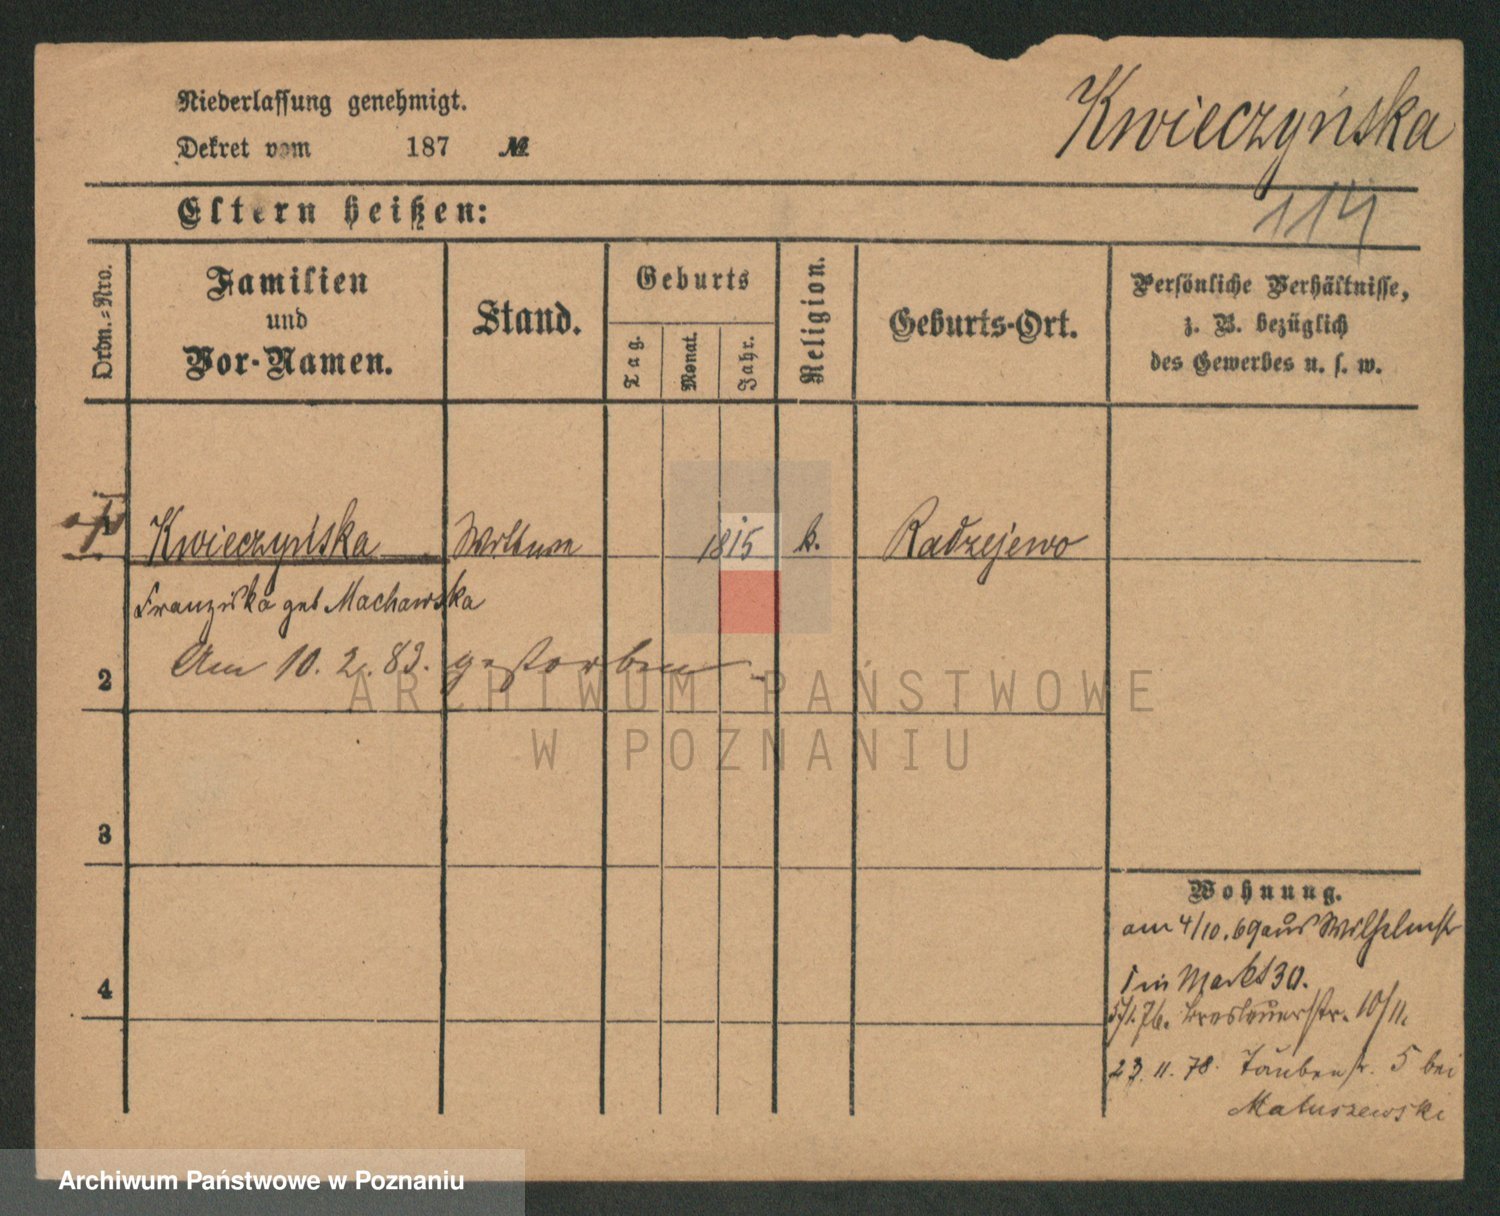 Niederlassung genehmigt.
Dekret vom 187 №
Kwieczyńska
114
Eltern heißen:
Ordn.-Nro.
Familien
und
Vor-Namen.
Stand.
Geburts
Tag.
Monat.
Jahr.
Religion.
Geburts-Ort.
Persönliche Verhältnisse,
z. B. bezüglich
des Gewerbes u. s. w.
Kwieczyńska Wittwe 1815 k. Radzejewo
Franziska geb Machawska
Am 10. 2. 83. gestorben
2
3
4
Wohnung.
am 4/10.69 aus Wilhelmstr
1 in Markt 30.
5/1.76. Breslauerstr. 10/11.
23. 11. 78. Taubenstr. 5 bei
Matuszewski
ARCHIWUM PAŃSTWOWE
W POZNANIU
Archiwum Państwowe w Poznaniu